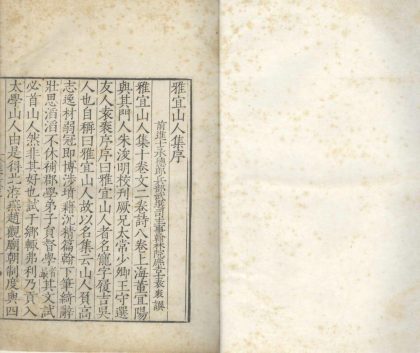 雅宜山人集序
前進士承德郎兵部武選司主事翰林院庶吉士袁袠撰
雅宜山人集十卷文二卷詩八卷上海董宜陽
與其門人朱浚明校刋厥兄太常少卿王守選
友人袁袠序序曰雅宜山人者名寵字履吉吳
人也自稱曰雅宜山人故以名集云山人質高
志逸材弱冠即博涉墳籍沉精篇翰下筆綺辭
壯思滔滔不休補郡學弟子員督學 其文試
必首山人然非其好也試于鄉輒弗利乃貢入
太學山人由是得北 燕趙觀廟朝制度與四